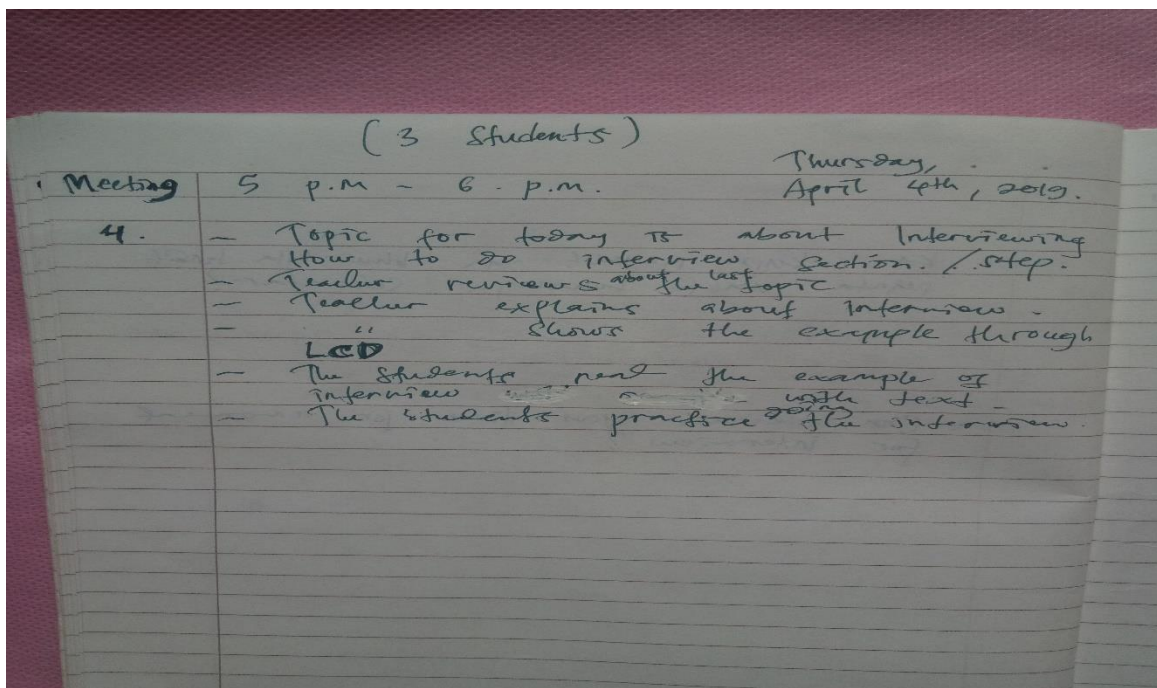 (3 Students)
Thursday,
Meeting 5 p.m - 6. p.m. April 4th, 2019.
4. - Topic for today is about Interviewing
How to do interview section. / step.
- Teacher reviews about the last topic
- Teacher explains about Interview.
- " shows the example through
LCD
- The students read the example of
interview with text.
- The students practice doing the interview.